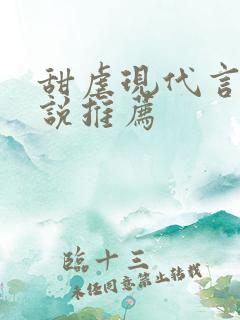 甜虐現代言
說推薦
臨十三
未經同意禁止轉載